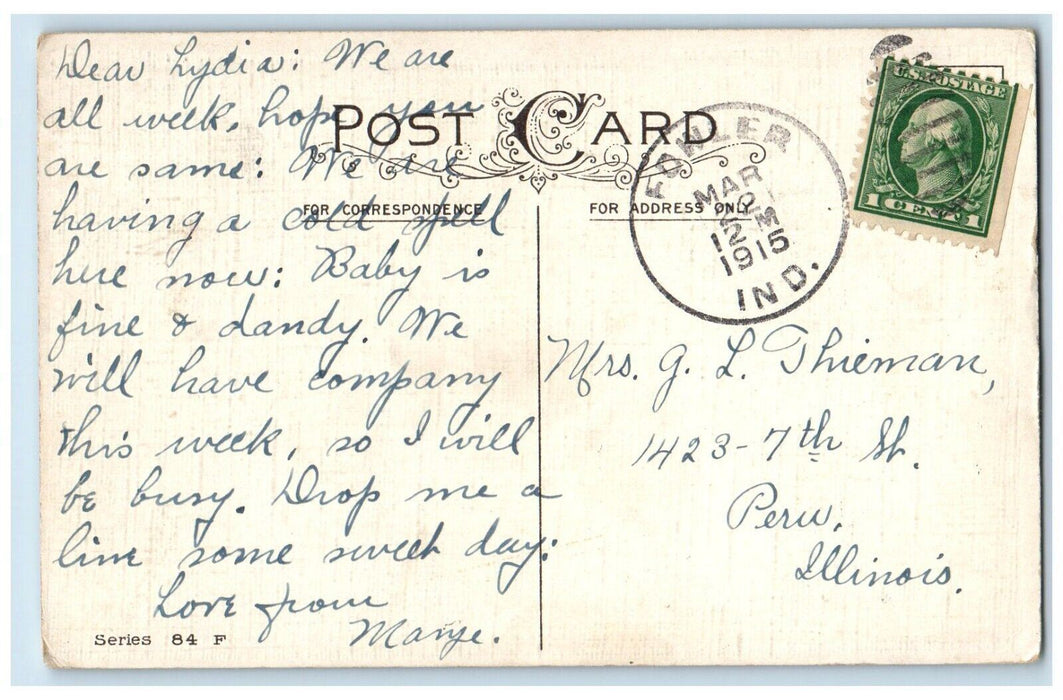 Dear Lydia: We are
all week, hope you
are same: We are
having a cold spell
here now: Baby is
fine & dandy. We
will have company
this week, so I will
be busy. Drop me a
line some sweet day:
Love from
Marye.
Series 84 F
POST CARD
FOR CORRESPONDENCE
FOR ADDRESS ONLY
FOWLER
MAR
2
12 M
1915
IND.
U.S. POSTAGE
1 CENT 1
Mrs. G. L. Thieman,
1423-7th St.
Peru,
Illinois.